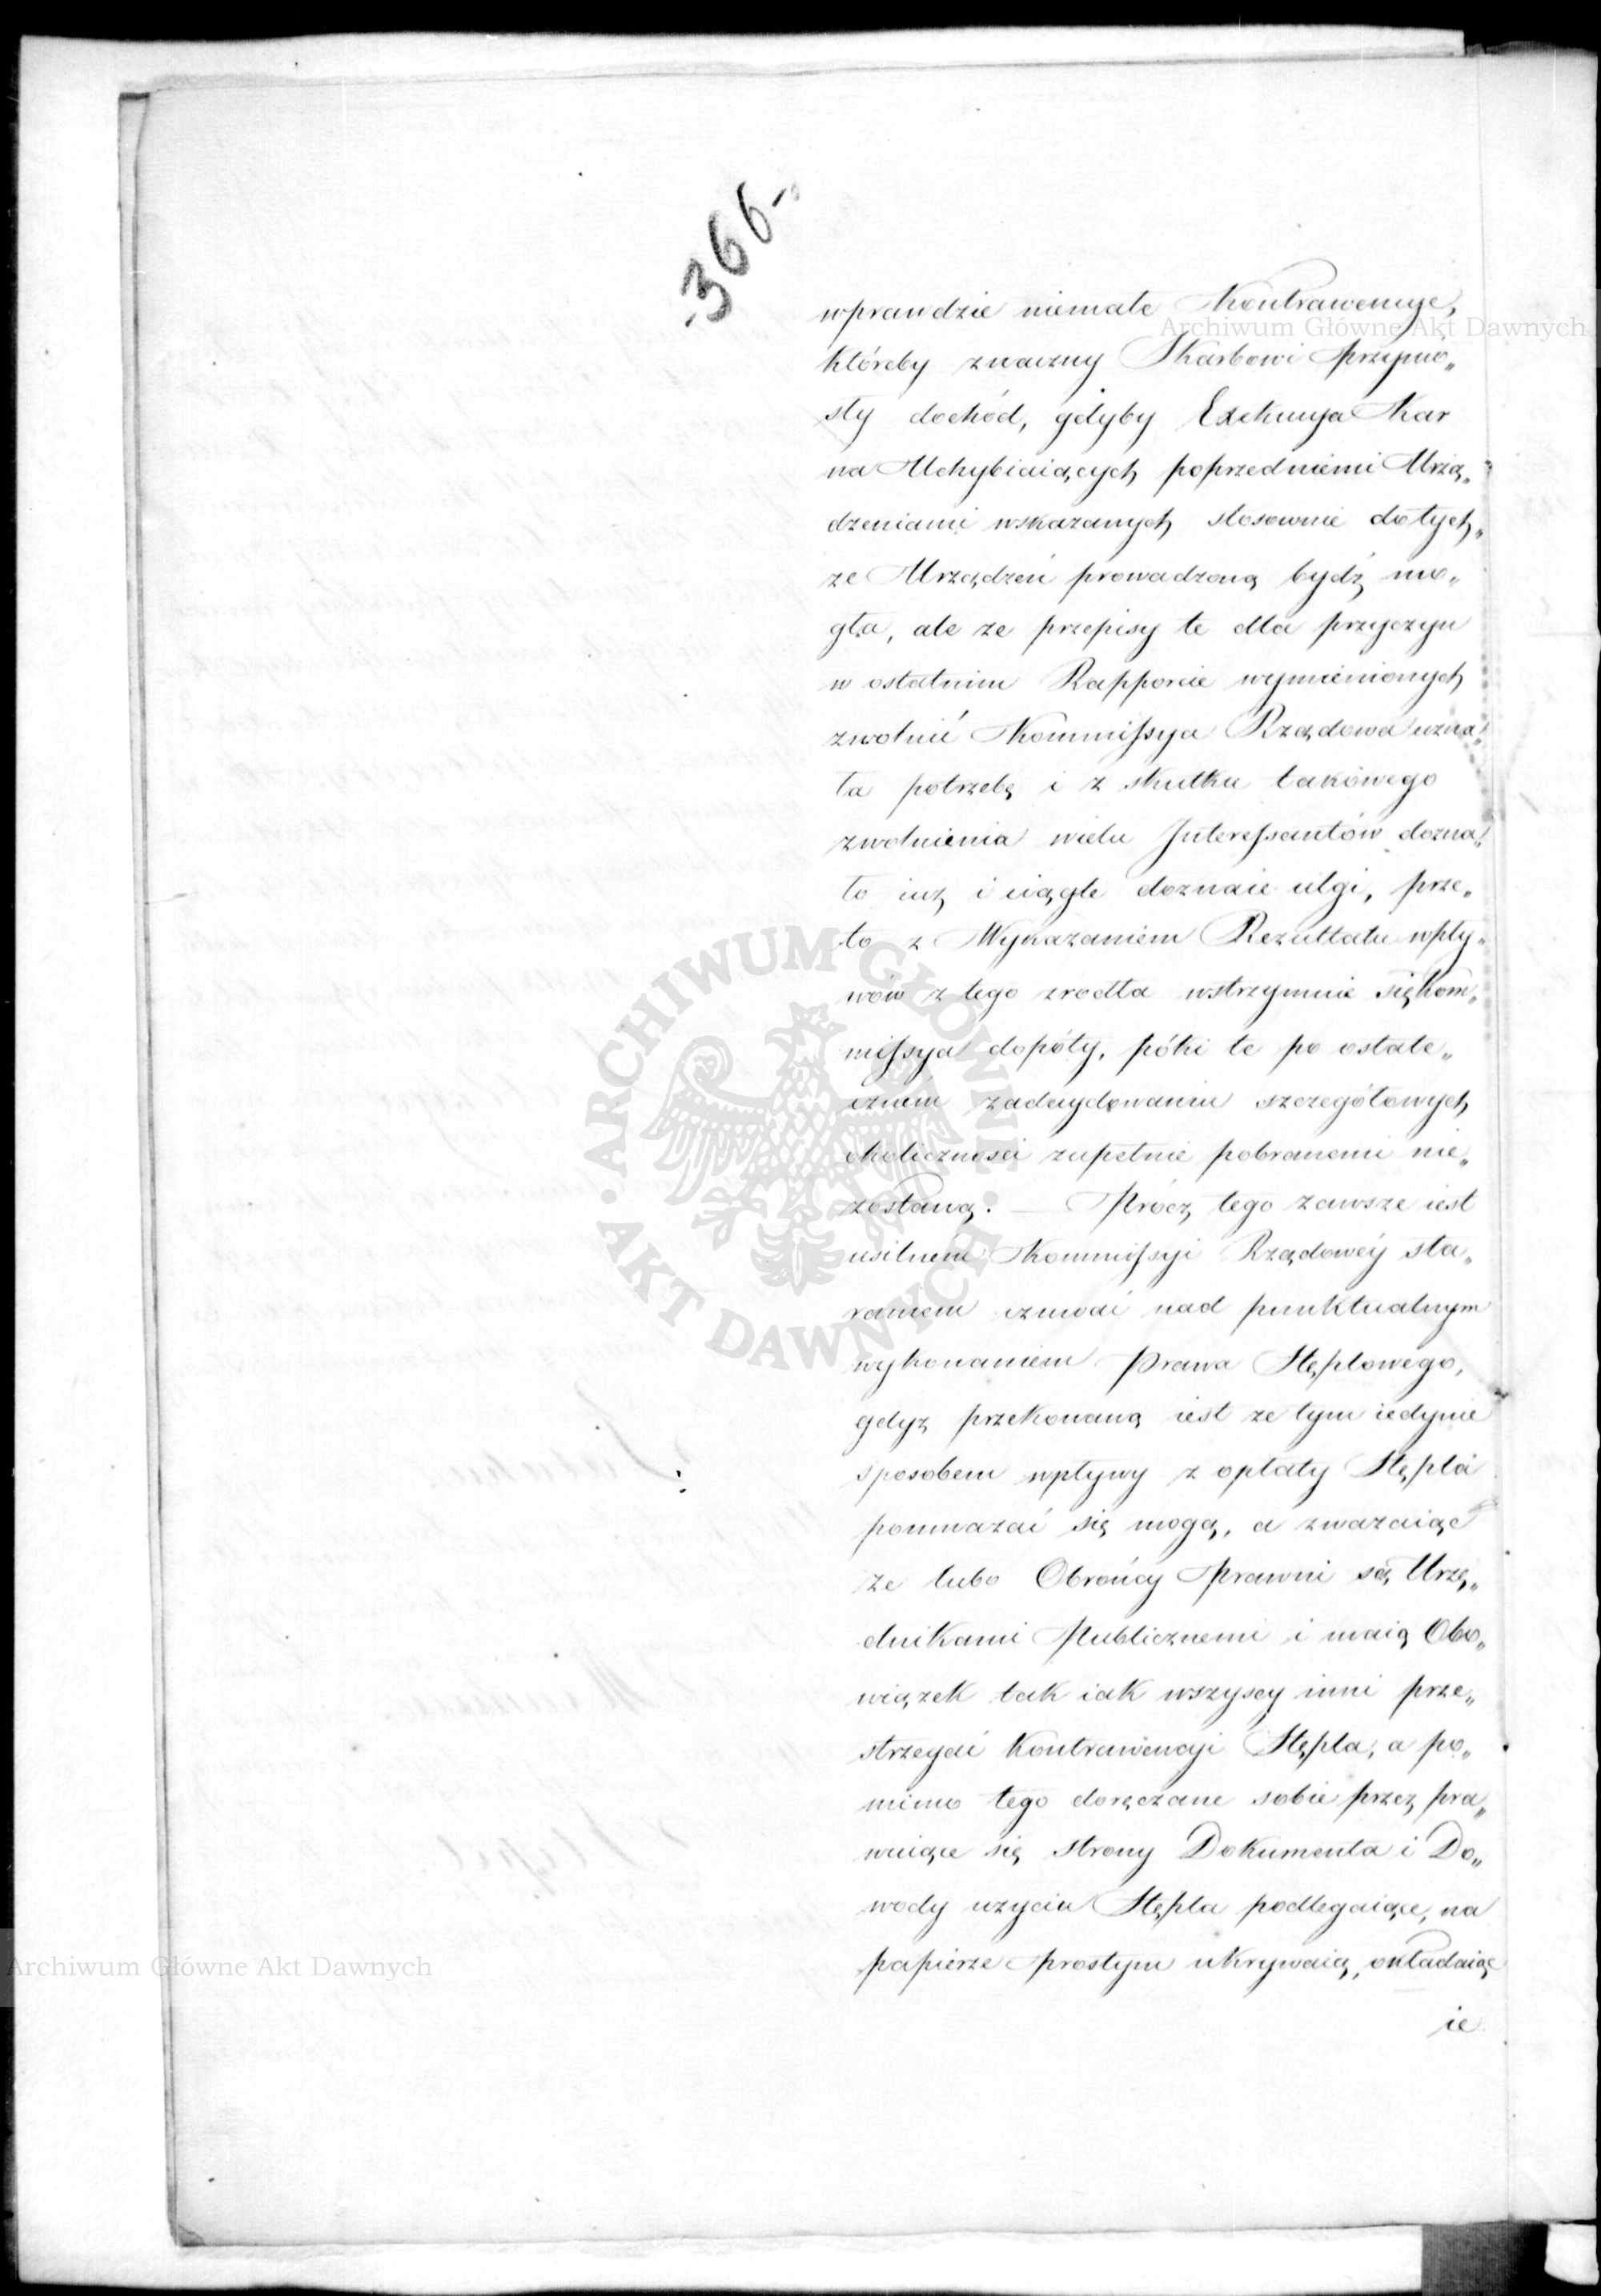 -366-
wprawdzie niemałe Kontrawencye,
któreby znaczny Skarbowi przynio„
sły dochód, gdyby Exekucya Kar
na Uchybiaiących poprzedniemi Urzą„
dzeniami wskazanych stosownie do tych„
ze Urządzeń prowadzoną bydź mo„
gła, ale ze przepisy te dla przyczyn
w ostatnim Rapporcie wymienionych
zwolnić Kommissya Rządowa uzna„
ła potrzebę i z skutku takowego
zwolnienia wielu Interessantów dozna„
ło iuz i ciągle doznaie ulgi, prze„
to z Wykazaniem Rezultatu wpły„
wów z tego zrodła wstrzymuie się Kom„
missya dopóty, póki te po ostate„
cznem zadecydowaniu szczegółowych
okoliczności zupełnie pobranemi nie„
zostaną. — Prócz tego zawsze iest
usilnem Kommissyi Rządowéy sta„
raniem czuwać nad punktualnym
wykonaniem Prawa Stęplowego,
gdyz przekonaną iest ze tym iedynie
sposobem wpływy z opłaty Stępla
pomnazać się mogą, a zwazaiąc
ze lubo Obrońcy Prawni są Urzę„
dnikami Publicznemi i maią Obo„
wiązek tak iak wszyscy inni prze„
strzegać Kontrawencyi Stępla, a po„
mimo tego doręczane sobie przez pra„
wuiące się strony Dokumenta i Do„
wody uzyciu Stępla podlegaiące, na
papierze prostym ukrywaią, okładaiąc
ie
Archiwum Główne Akt Dawnych
ARCHIWUM GŁÓWNE AKT DAWNYCH
Archiwum Główne Akt Dawnych